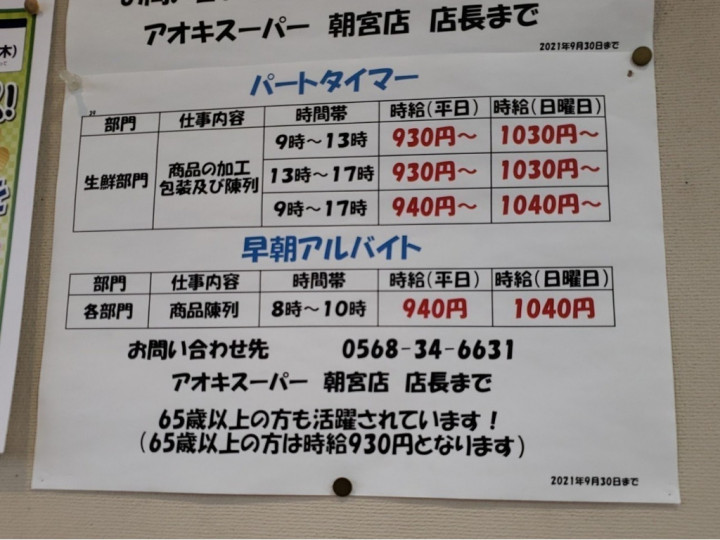 アオキスーパー 朝宮店 店長まで
2021年9月30日まで
パートタイマー
部門 仕事内容 時間帯 時給(平日) 時給(日曜日)
生鮮部門 商品の加工 包装及び陳列 9時～13時 930円～ 1030円～
13時～17時 930円～ 1030円～
9時～17時 940円～ 1040円～
早朝アルバイト
部門 仕事内容 時間帯 時給(平日) 時給(日曜日)
各部門 商品陳列 8時～10時 940円 1040円
お問い合わせ先 0568-34-6631
アオキスーパー 朝宮店 店長まで
65歳以上の方も活躍されています!
(65歳以上の方は時給930円となります)
2021年9月30日まで